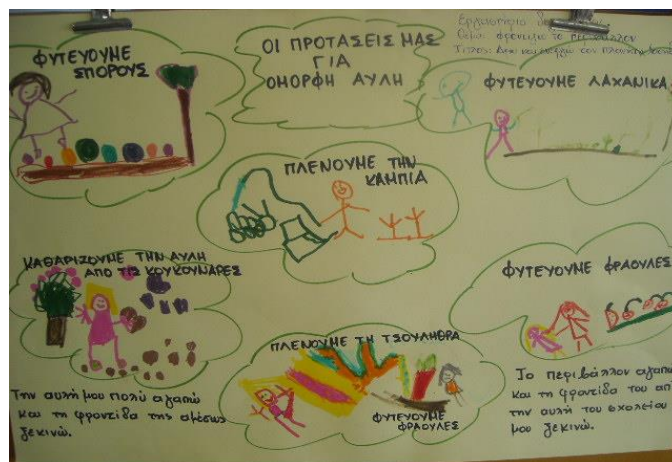 ΦΥΤΕΥΟΥΜΕ
ΣΠΟΡΟΥΣ
ΟΙ ΠΡΟΤΑΣΕΙΣ ΜΑΣ
ΓΙΑ
ΟΜΟΡΦΗ ΑΥΛΗ
Εργαστήριο
Θέμα: φροντίζω το περιβάλλον
Τίτλος:
ΦΥΤΕΥΟΥΜΕ ΛΑΧΑΝΙΚΑ
ΠΛΕΝΟΥΜΕ ΤΗΝ
ΚΑΜΠΙΑ
ΚΑΘΑΡΙΖΟΥΜΕ ΤΗΝ ΑΥΛΗ
ΑΠΟ ΤΙΣ ΚΟΥΚΟΥΝΑΡΕΣ
ΦΥΤΕΥΟΥΜΕ ΦΡΑΟΥΛΕΣ
ΠΛΕΝΟΥΜΕ ΤΗ ΤΣΟΥΛΗΘΡΑ
ΦΥΤΕΥΟΥΜΕ
ΦΡΑΟΥΛΕΣ
Την αυλή μου πολύ αγαπώ
και τη φροντίδα της αμέσως
ξεκινώ.
Το περιβάλλον αγαπώ
και τη φροντίδα του απ
την αυλή του σχολείου
μου ξεκινώ.